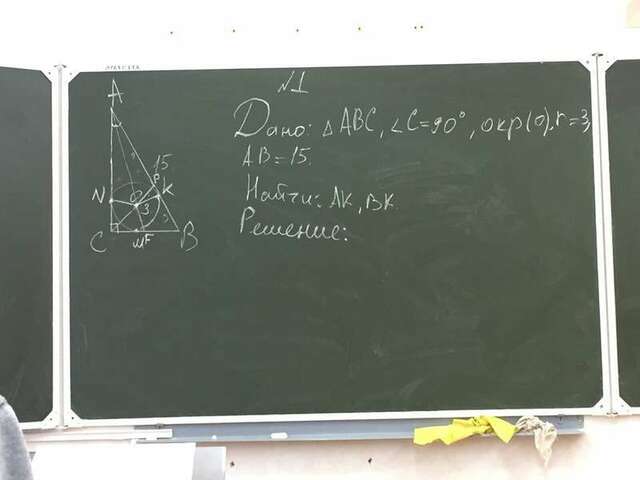 №1
Дано: △ABC, ∠C=90°, окр(O), r=3,
AB=15.
Найти: AK, BK.
Решение:
A
15
P
K
N
O
3
C
M
F
B